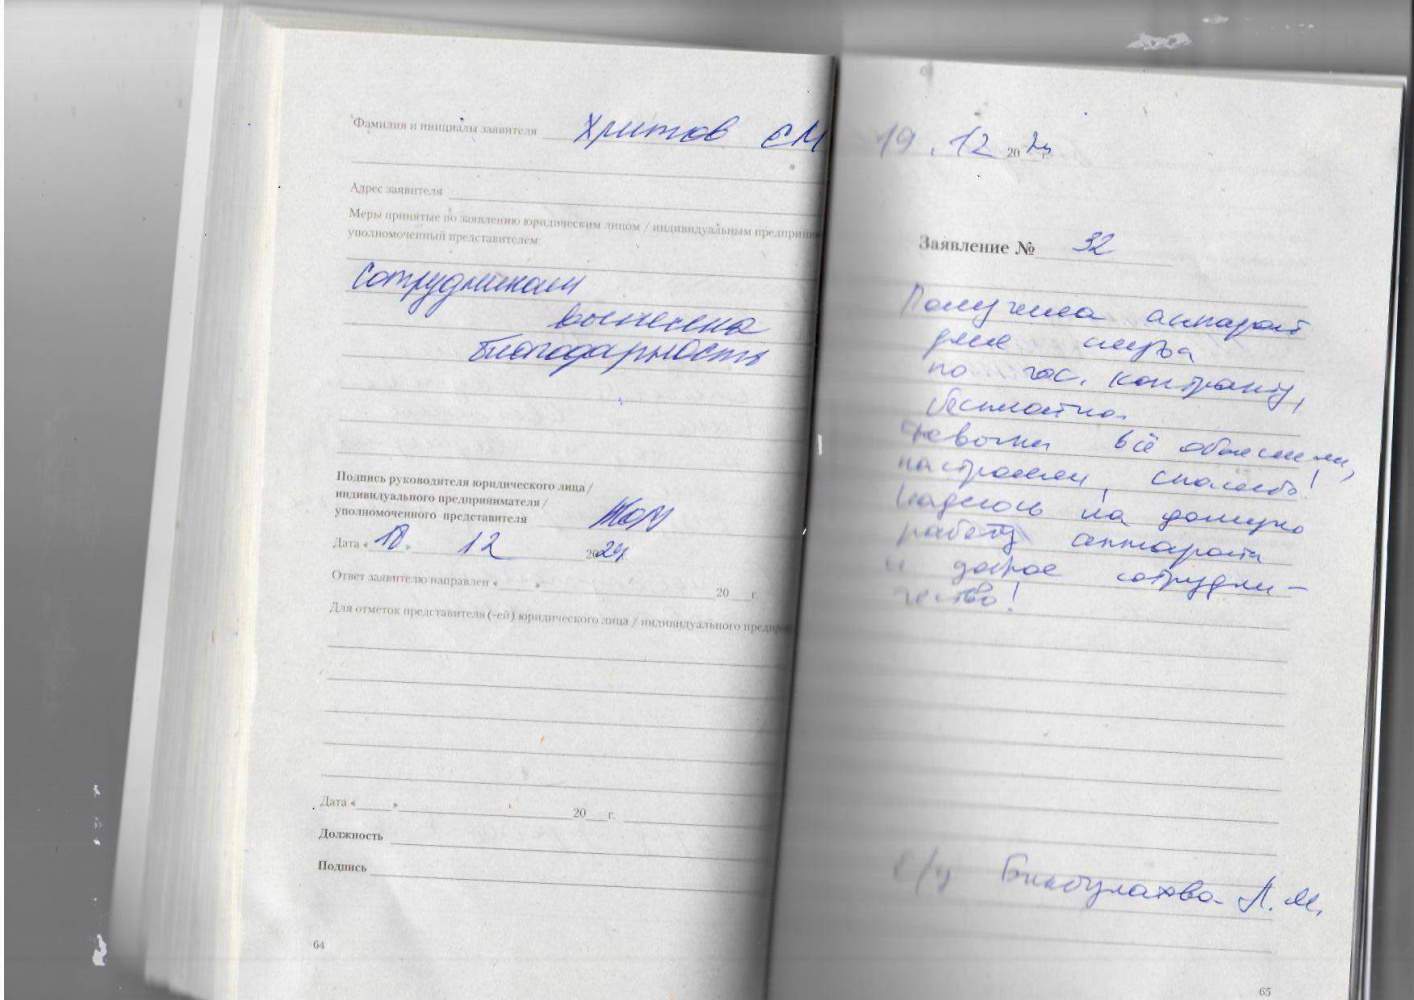 Фамилия и инициалы заявителя Хритов С М
Адрес заявителя
Меры принятые по заявлению юридическим лицом / индивидуальным предприни
уполномоченный представителем
Сотрудникам
вынесена
благодарность
Подпись руководителя юридического лица /
индивидуального предпринимателя /
уполномоченного представителя
Дата « 18 » 12 2024
Ответ заявителю направлен « » 20 г.
Для отметок представителя (-ей) юридического лица / индивидуального предпри
Дата « » 20 г.
Должность
Подпись
64
19 . 12 2024 г.
Заявление № 32
Получила аппарат
для слуха
по гос. контракту,
бесплатно.
Девочки всё объяснили,
настроили, спасибо!
Надеюсь на долгую
работу аппарата
и доброе сотрудни-
чество!
Бикбулатова Л. М.
65